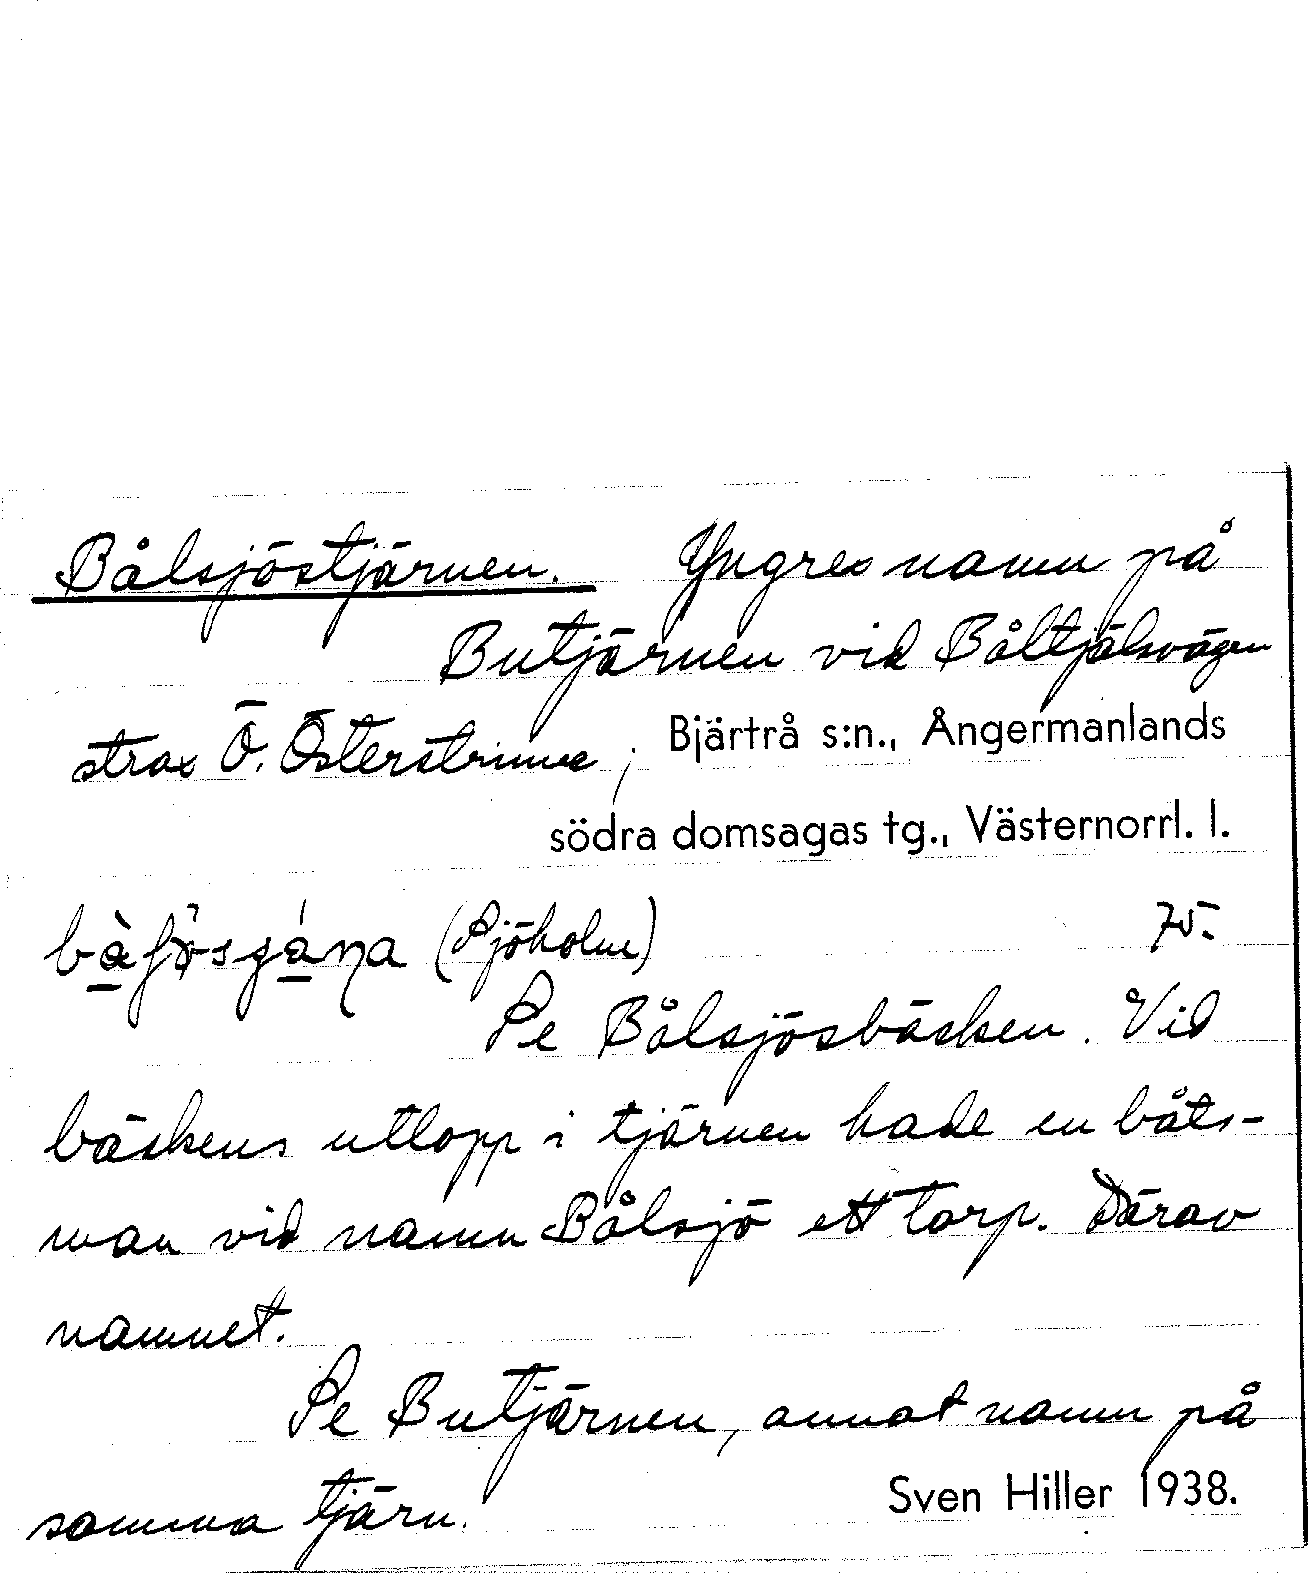 Bålsjöstjärnen. Yngres namn på
Butjärnen vid Båltjälsvägen
strax Ö. Österstrinne, Bjärtrå s:n., Ångermanlands
södra domsagas tg., Västernorrl. l.
(Sjöholm) 75.
Se Bålsjösbäcken. Vid
bäckens utlopp i tjärnen hade en båts-
man vid namn Bålsjö ett torp. Därav
namnet.
Se Butjärnen, annat namn på
samma tjärn. Sven Hiller 1938.